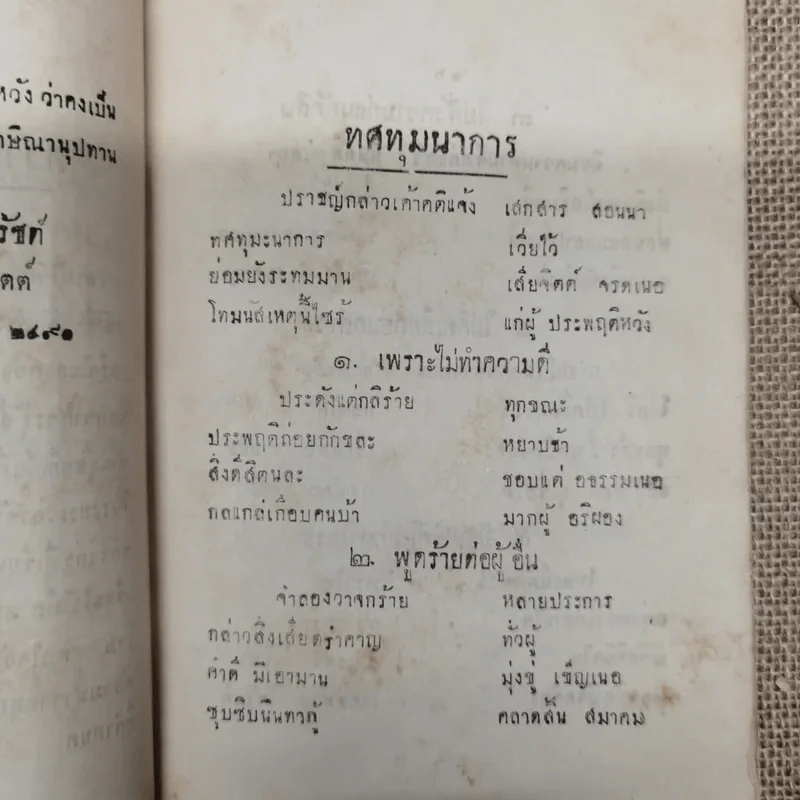 หวัง ว่าคงเป็น
าษิณานุปทาน
รัชต์
ตต์
๒๔๙๑
ทศทุมนาการ
ปราชญ์กล่าวเค้าคติแจ้ง เสกสาร สอนนา
ทศทุมะนาการ เวี่ยไว้
ย่อมยังระทมมาน เสียจิตต์ จรดเนอ
โทมนัสเหตุนี้ไซร้ แก่ผู้ ประพฤติหวัง
๑. เพราะไม่ทำความดี
ประดังแต่กลิร้าย ทุกขณะ
ประพฤติถ่อยกักขละ หยาบช้า
สิ่งดีสิตนละ ชอบแต่ อธรรมเนอ
กลแกล่เกือบคนบ้า มากผู้ อริผอง
๒. พูดร้ายต่อผู้อื่น
จำลองวาจกร้าย หลายประการ
กล่าวสิ่งเสียดรำคาญ ทั่วผู้
คำดี มิเอามาน มุ่งขู่ เข็ญเนอ
ซุบซิบนินทากู้ คลาดสิ้น สมาคม